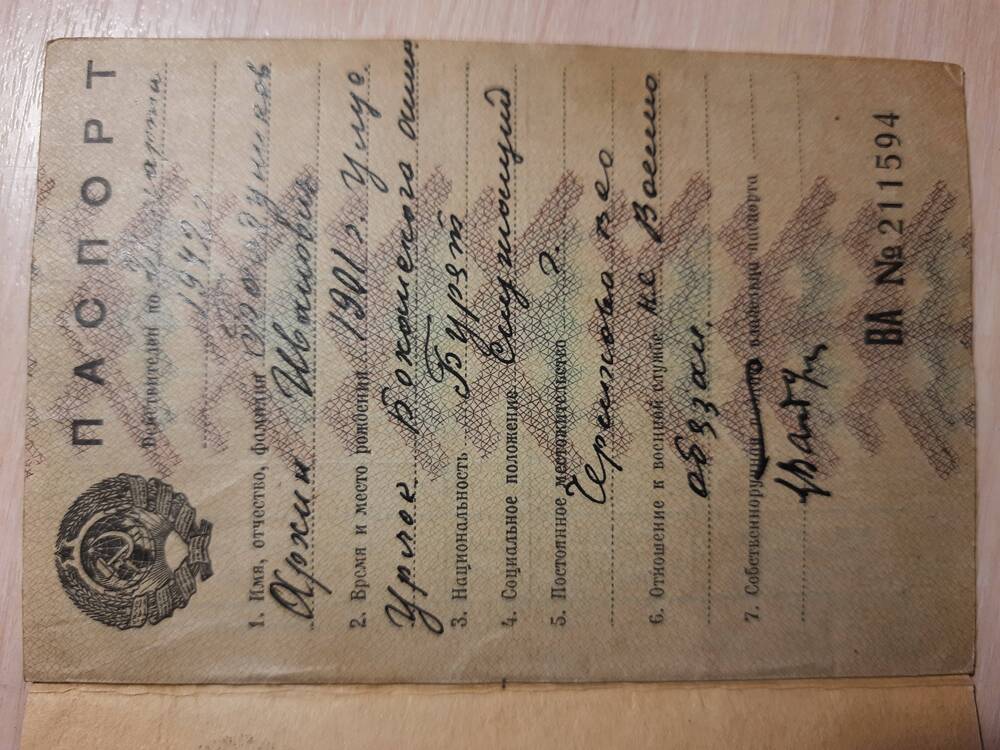 ПАСПОРТ
Действителен по
1942 г.
1. Имя, отчество, фамилия
Аржин
2. Время и место рождения 1901 г. Улус
Урлок Боханского айм
3. Национальность Бурят
4. Социальное положение Служащий
5. Постоянное местожительство г.
Черемхово
6. Отношение к военной службе не военно
обязан.
7. Собственноручная подпись владельца паспорта
ВА № 211594